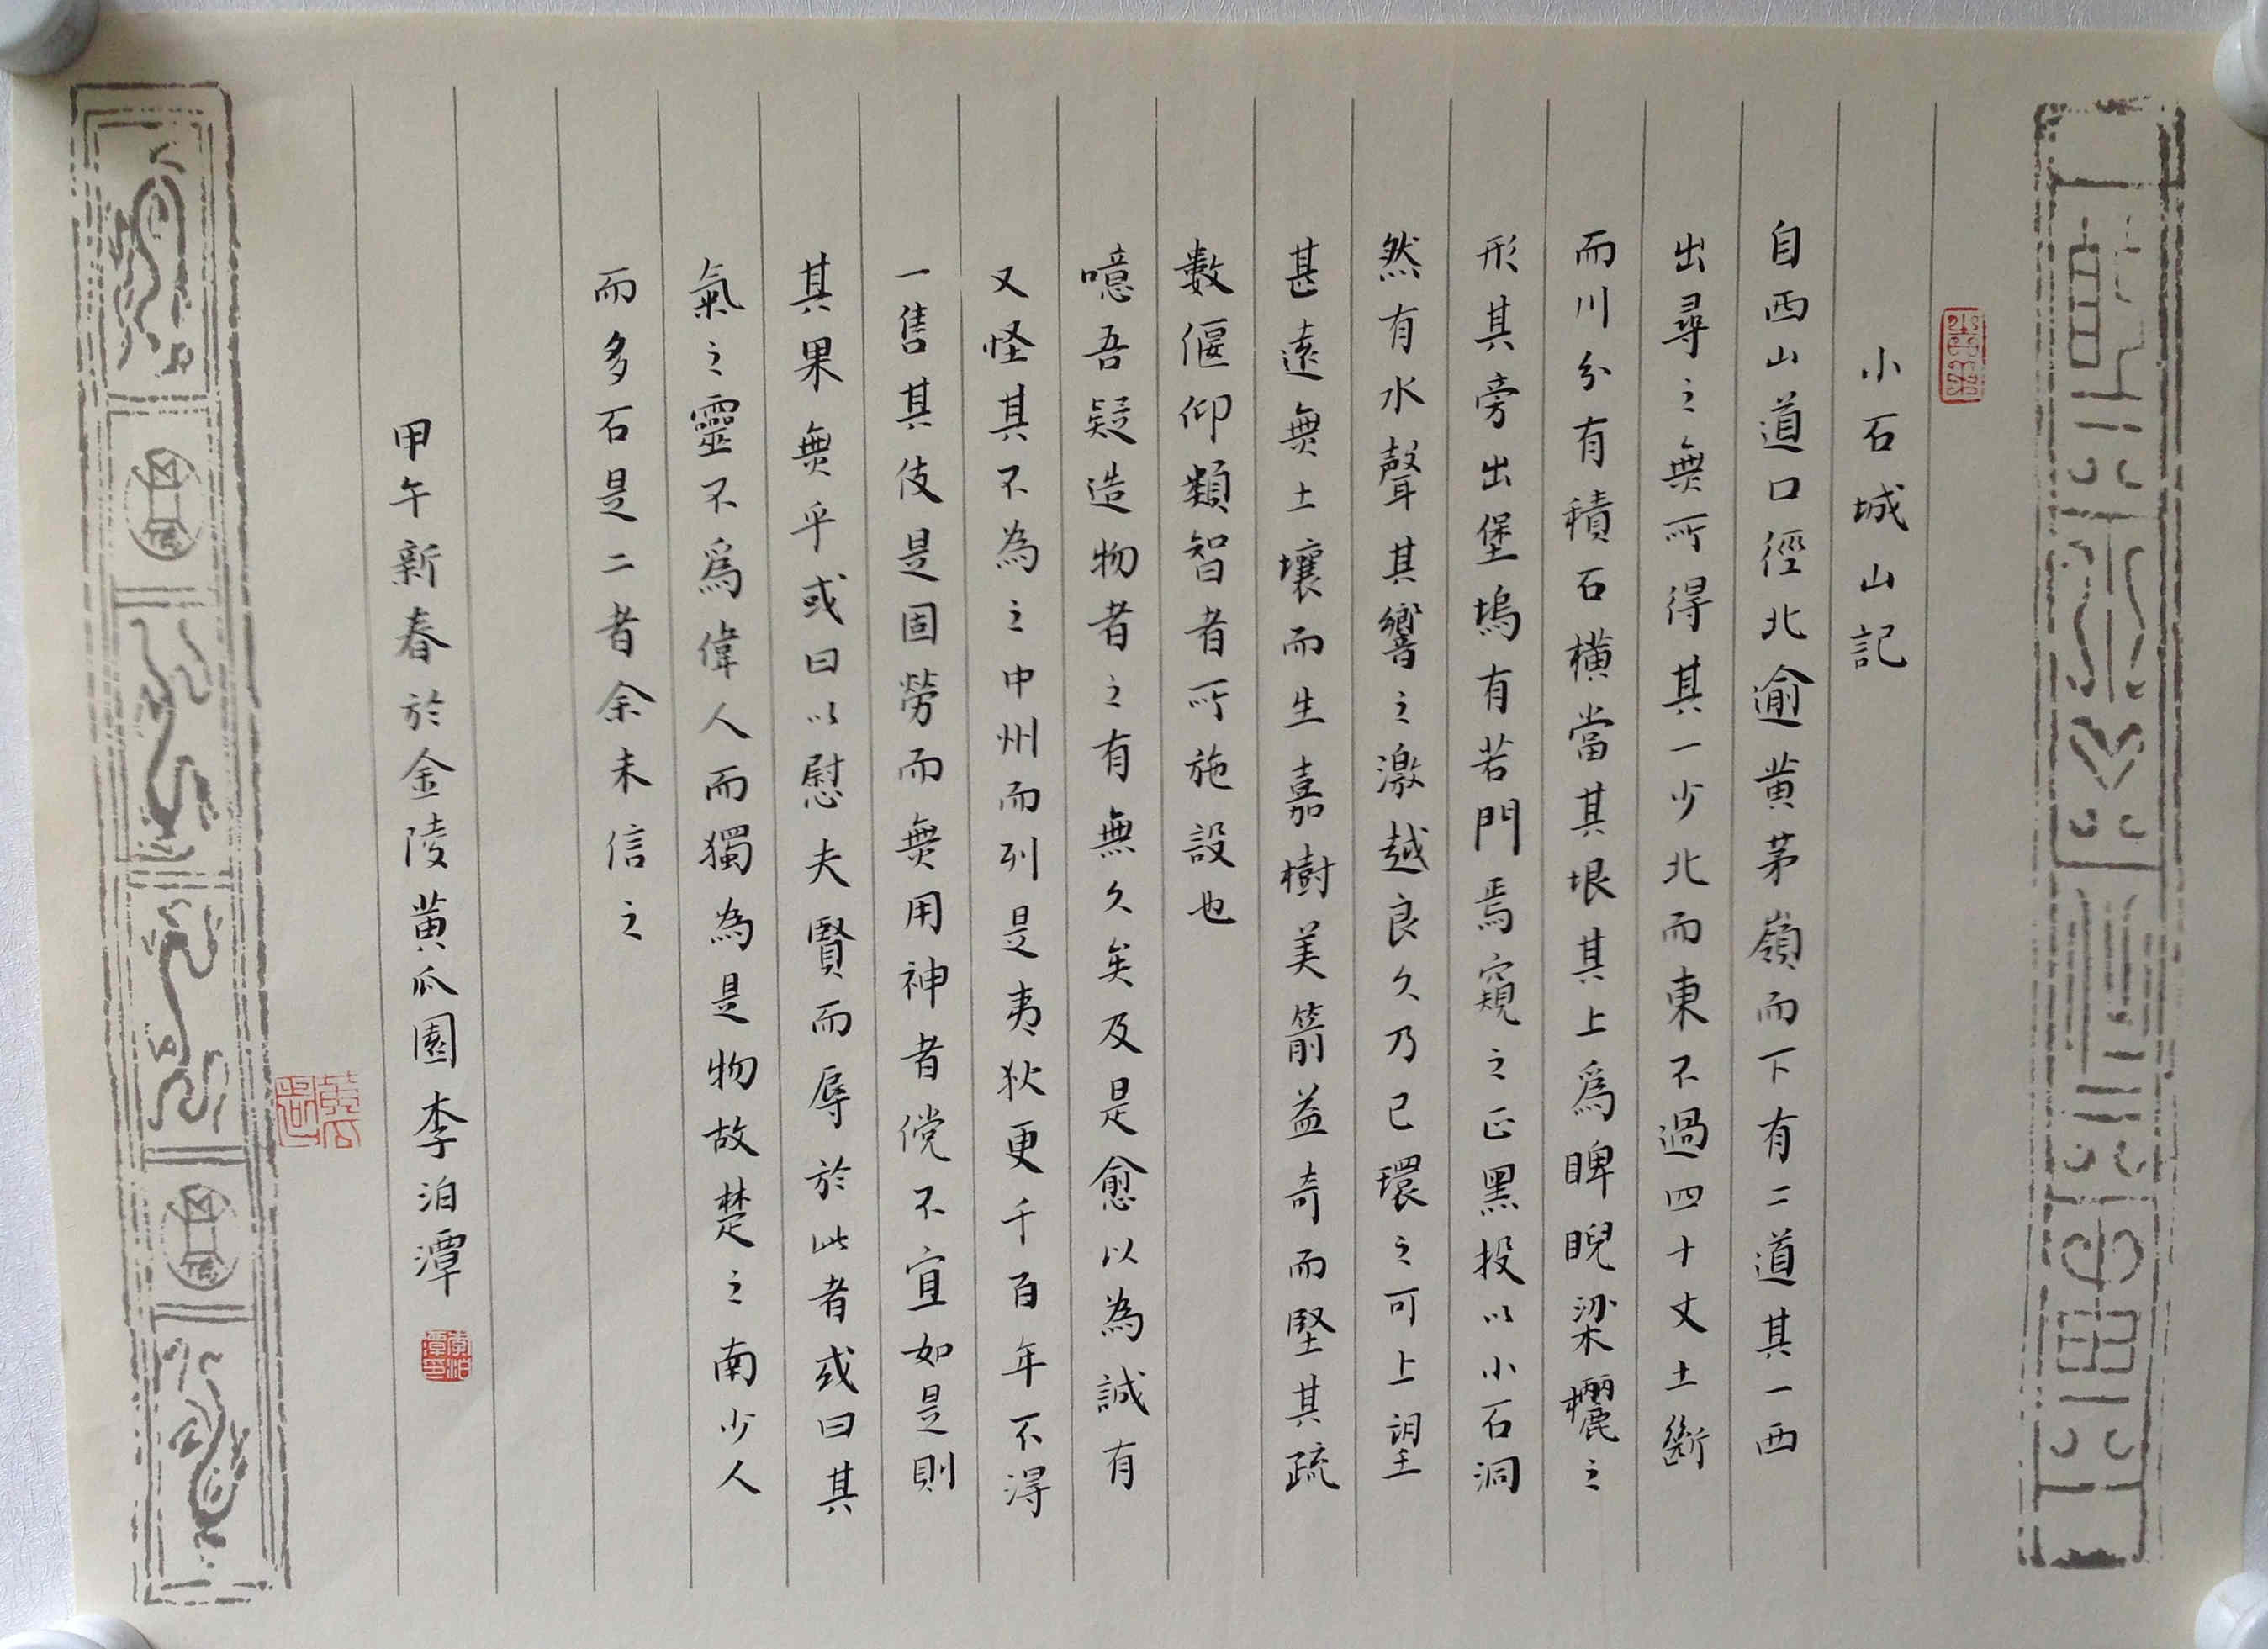 小石城山記
自西山道口徑北逾黄茅嶺而下有二道其一西
出尋之無所得其一少北而東不過四十丈土斷
而川分有積石橫當其垠其上爲睥睨梁欐之
形其旁出堡塢有若門焉窺之正黑投以小石洞
然有水聲其響之激越良久乃已環之可上望
甚遠無土壤而生嘉樹美箭益奇而堅其疏
數偃仰類智者所施設也
噫吾疑造物者之有無久矣及是愈以為誠有
又怪其不為之中州而列是夷狄更千百年不得
一售其伎是固勞而無用神者儻不宜如是則
其果無乎或曰以慰夫賢而辱於此者或曰其
氣之靈不爲偉人而獨為是物故楚之南少人
而多石是二者余未信之
甲午新春於金陵黄瓜園李泊潭
李泊潭印